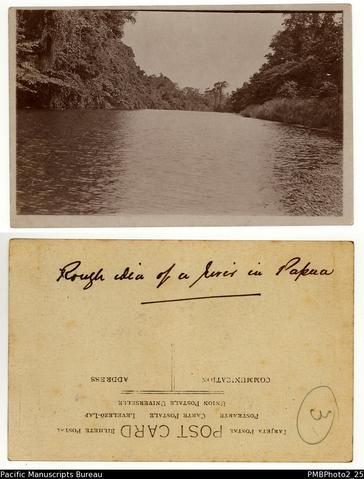 Rough idea of a river in Papua
COMMUNICATION ADDRESS
UNION POSTALE UNIVERSELLE
POSTKARTE CARTE POSTALE LEVELEZÖ-LAP
TARJETA POSTAL POST CARD BILHETE POSTAL
3
Pacific Manuscripts Bureau PMBPhoto2_25